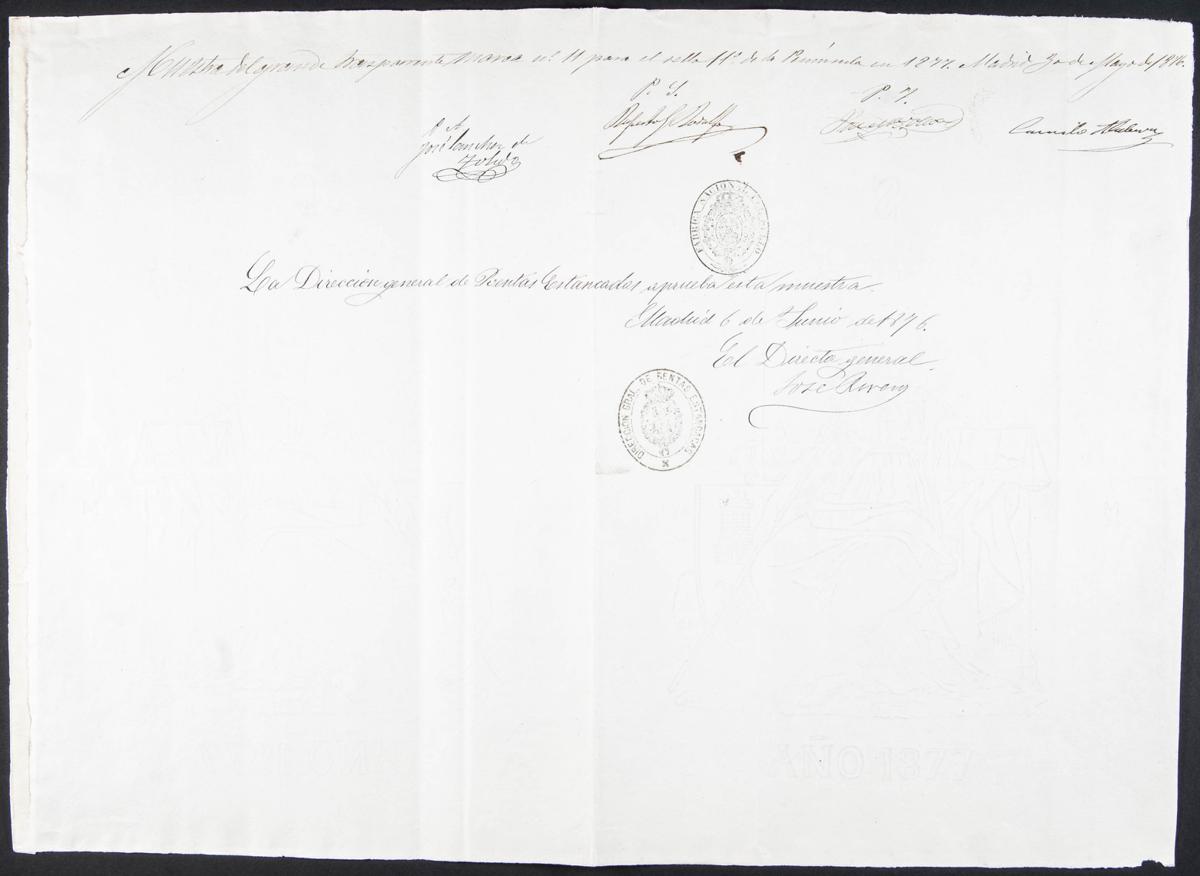 Muestra del grande trasparente marca n.º 11 para el sello 11º de la Península en 1877. Madrid 30 de Mayo de 1876.
P. S.
P. Y.
P. A.
José Sanchez de
Toledo
Camilo
FABRICA NACIONAL DEL SELLO
La Direccion general de Rentas Estancadas aprueba esta muestra.
Madrid 6 de Junio de 1876.
El Director general.
Jose
DIRECCION GRAL. DE RENTAS ESTANCADAS
AÑO 1877
AÑO 1877